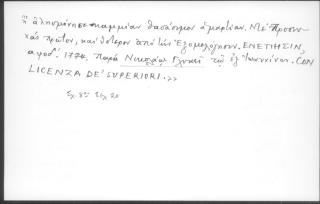 ἢ ἀλησμόνησε καμμίαν θανάσιμον ἁμαρτίαν. Μὲ Προσευ-
χὰς πρῶτον, καὶ ὕστερον ἀπὸ τὴν Ἐξομολόγησιν. ΕΝΕΤΗΣΙΝ,
αψοδ΄. 1774. Παρὰ Νικολάῳ Γλυκεῖ τῷ ἐξ Ἰωαννίνων. CON
LICENZA DE' SUPERIORI.>>
Σχ. 8ον σελ. 20